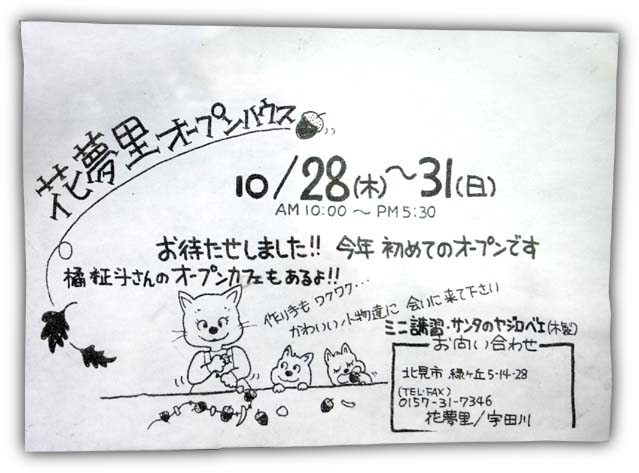 花夢里オープンハウス
10/28(木)～31(日)
AM 10:00 ～ PM 5:30
お待たせしました!! 今年 初めてのオープンです
橘 柾斗さんのオープンカフェもあるよ!!
作り手も ワクワク・・・
かわいい小物達に 会いに来て下さい
ミニ講習・サンタのヤジロベエ(木製)
お问い合わせ
北見市 緑ヶ丘5-14-28
(TEL・FAX)
0157-31-7346
花夢里/宇田川